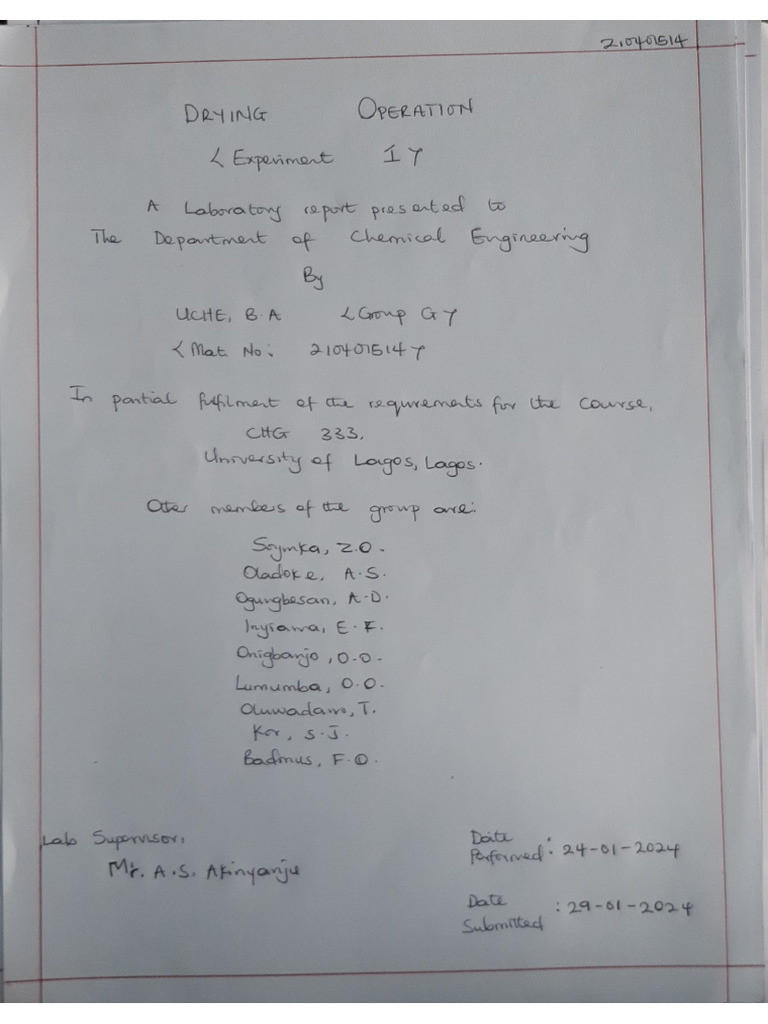 210401514
DRYING OPERATION
< Experiment I >
A Laboratory report presented to
The Department of Chemical Engineering
By
UCHE, B.A < Group G >
< Mat. No: 210401514 >
In partial fulfilment of the requirements for the course,
CHG 333,
University of Lagos, Lagos.
Other members of the group are:
Soyinka, Z.O.
Oladoke, A.S.
Ogungbesan, A.D.
Inyiama, E.F.
Onigbanjo, O.O.
Lumumba, O.O.
Oluwadare, T.
Kor, S.J.
Badmus, F.O.
Lab Supervisor:
Mr. A.S. Akinyanju
Date Performed : 24-01-2024
Date Submitted : 29-01-2024